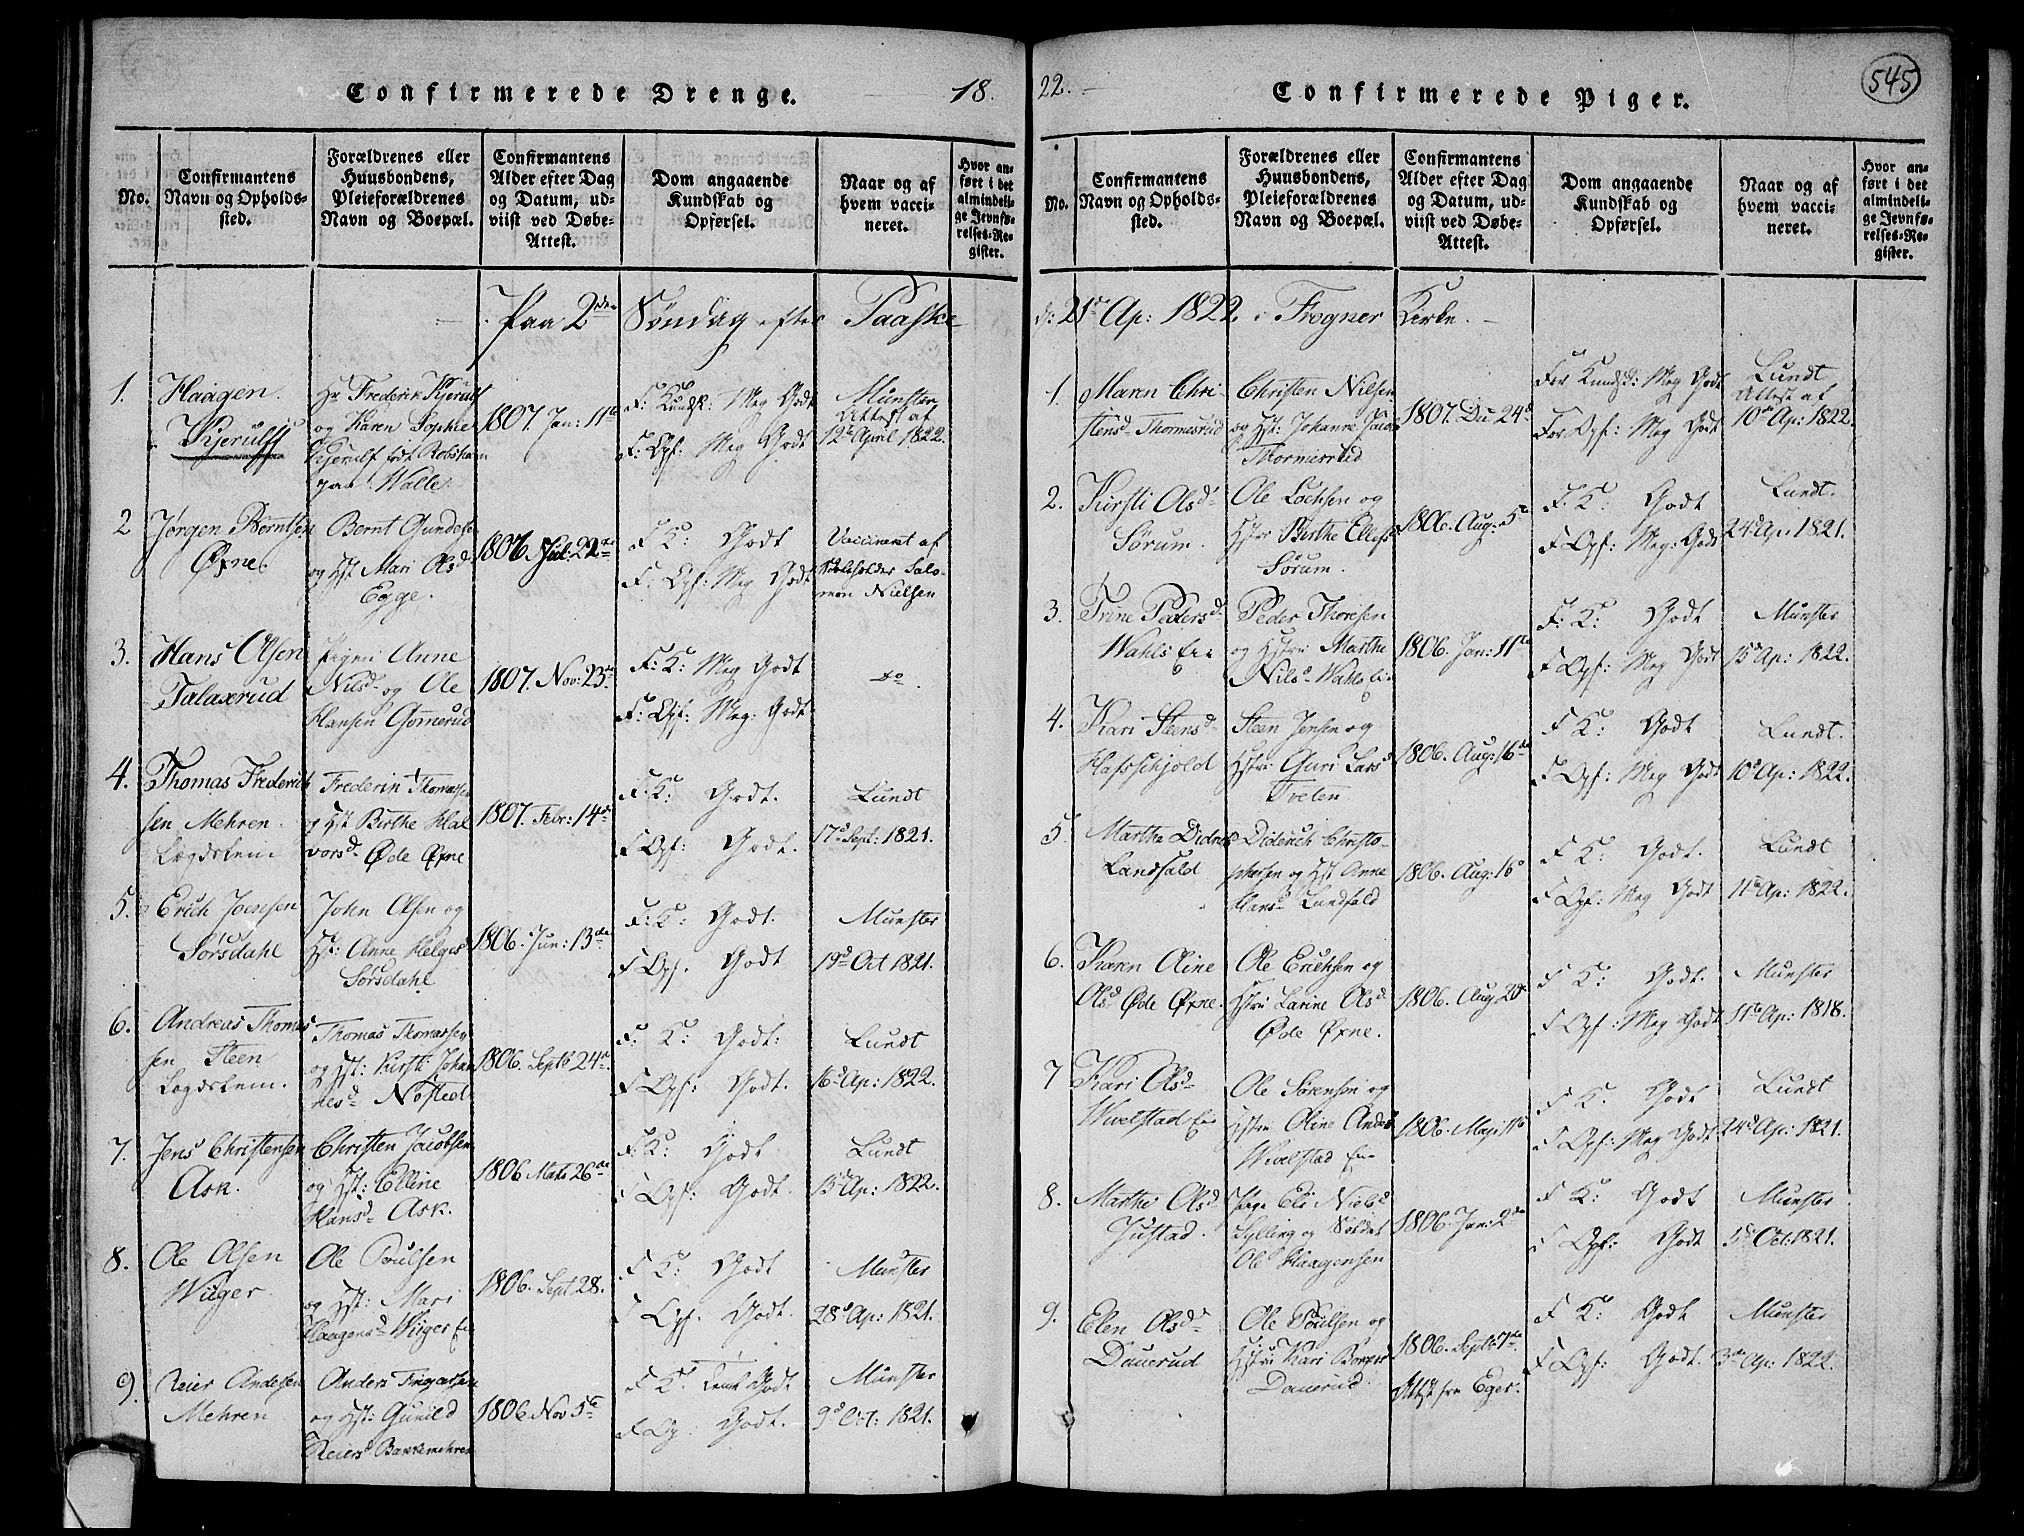 Confirmerede Drenge. 18.
No.
Confirmantens
Navn og Opholds-
sted.
Forældrenes eller
Huusbondens,
Pleieforældrenes
Navn og Boepæl.
Confirmantens
Alder efter Dag
og Datum, ud-
viist ved Døbe-
Attest.
Dom angaaende
Kundskab og
Opførsel.
Naar og af
hvem vacci-
neret.
Hvor an-
ført i det
almindeli-
ge Jevnfø-
relses-Re-
gister.
Paa 2den Søndag efter Paaske
1.
Haagen
Kjerulff
Hr Frederik Kjerulf
og Karen Sophie
Kjerulf født Robsham
paa Walle.
1807. Jan: 11te
F: Kundsk: Meg Godt
F: Opf: Meg Godt
Munster
Attest af
12te April 1822.
2
Jørgen Berntsen
Øxne.
Bernt Gundes
og Hst Mari Olsd
Egge.
1806. Jul: 22de
F K: Godt
F: Opf: Meg Godt
Vaccineret af
Skoleholder Salo-
mon Nielsen
3.
Hans Olsen
Talaxrud
Pigen Anne
Nilsd og Ole
Hansen Gomerud
1807. Nov: 23de
F: K: Meg Godt
F: Opf: Meg: Godt
do.
4.
Thomas Frederich
sen Mehren
Lægdslem
Frederik Thomassen
og Hst Birthe Hal
vorsd Øde Øxne
1807. Febr: 14de
F: K: Godt.
F Opf: Godt.
Lundt
17d Sept: 1821.
5.
Erich Joensen
Sørsdahl
John Olsen og
Hst: Anne Helges
Sørsdahl
1806. Jun: 13de
F: K: Godt.
F Opf. Godt
Munster
19d Oct 1821.
6.
Andreas Thomas
sen Steen
Lægdslem.
Thomas Thomassen
og Hst: Kirsti Johan
nesd Nøsted
1806. Septb 24de
F: K: Godt:
F Opf: Godt.
Lundt
16d Ap: 1822.
7.
Jens Christensen
Ask.
Christen Jacobsen
og Hst: Elline
Hansd Ask.
1806 Marts 26de
F K: Godt
F Opf: Godt.
Lundt
15d Ap: 1822.
8.
Ole Olsen
Wiiger
Ole Poulsen
og Hst: Mari
Haagensd Wiiger Eie
1806. Sept 28.
F K: Godt
F Opf. Godt.
Munster
28d Ap: 1821.
9.
Reier Andersen
Mehren
Anders
og Hst: Gunild
Reiersd Bakkemehren
1806 Nov 5te
F K: Godt
F Op: Godt.
Munster
9d Oct: 1821.
22. Confirmerede Piger. 545
No.
Confirmantens
Navn og Opholds-
sted.
Forældrenes eller
Huusbondens,
Pleieforældrenes
Navn og Boepæl.
Confirmantens
Alder efter Dag
og Datum, ud-
viist ved Døbe-
Attest.
Dom angaaende
Kundskab og
Opførsel.
Naar og af
hvem vacci-
neret.
Hvor an-
ført i det
almindeli-
ge Jevnfø-
relses-Re-
gister.
d: 21de Ap: 1822. i Frogner Kirke.
1.
Maren Chri-
stensd Thomesrud
Christen Nilsen
og Hst: Johanne
1807. Dec 24d
For Kundsk: Meg Godt
For Opf: Meg Godt
Lundt
Attest af
10de Ap: 1822.
2.
Kirsti Olsd
Sørum
Ole Lochsen og
Hstru Birthe Ellefsd
Sørum.
1806. Aug: 5te
F K: Godt
F Opf: Meg: Godt
Lundt.
24d Ap: 1821.
3.
Trine Pedersd
Wahls Eie
Peder Thoresen
og Hstru Marthe
Nilsd Wahls Eie
1806. Jan: 11te
F: K: Godt
F Opf: Meg Godt
Munster
15d Ap: 1822.
4.
Kari Steensd
Hafschjold
Steen Jensen og
Hstru: Guri Larsd
Tveten
1806. Aug: 16de
F K: Godt
F Opf: Meg Godt
Lundt.
10d Ap: 1822.
5
Marthe Didrichs
Landfald
Diderich Christo-
phersen og Hst Anne
Hansd Landfald
1806. Aug: 16
F K: Godt.
F Opf: Meg Godt
Lundt
11te Ap: 1822.
6.
Karen Oline
Olsd Øde Øxne.
Ole Erichsen og
Hstru Larine Olsd
Øde Øxne.
1806. Aug. 20de
F K: Godt.
F Opf: Meg Godt
Munster
11te Ap: 1818.
7
Kari Olsd
Wivelstad Eie
Ole Sørensen og
Hstru Oline Andersd
Wivelstad Eie
1806. Maji 11te
F K: Godt
F Opf: Meg Godt
Lundt
24d Ap: 1821.
8.
Marthe Olsd
Justad.
Pige Eli Nielsd
Sylling og Soldat
Ole Haagensen
1806. Jan: 2de
F K: Godt
F Opf: Godt
Munster
5te Oct: 1821.
9.
Elen Olsd
Dauerud
Ole Poulsen og
Hstru Kari
Dauerud.
1806. Septb 7de
Attest fra Eger.
F K: Godt
F Opf: Godt.
Munster
3de Ap: 1822.